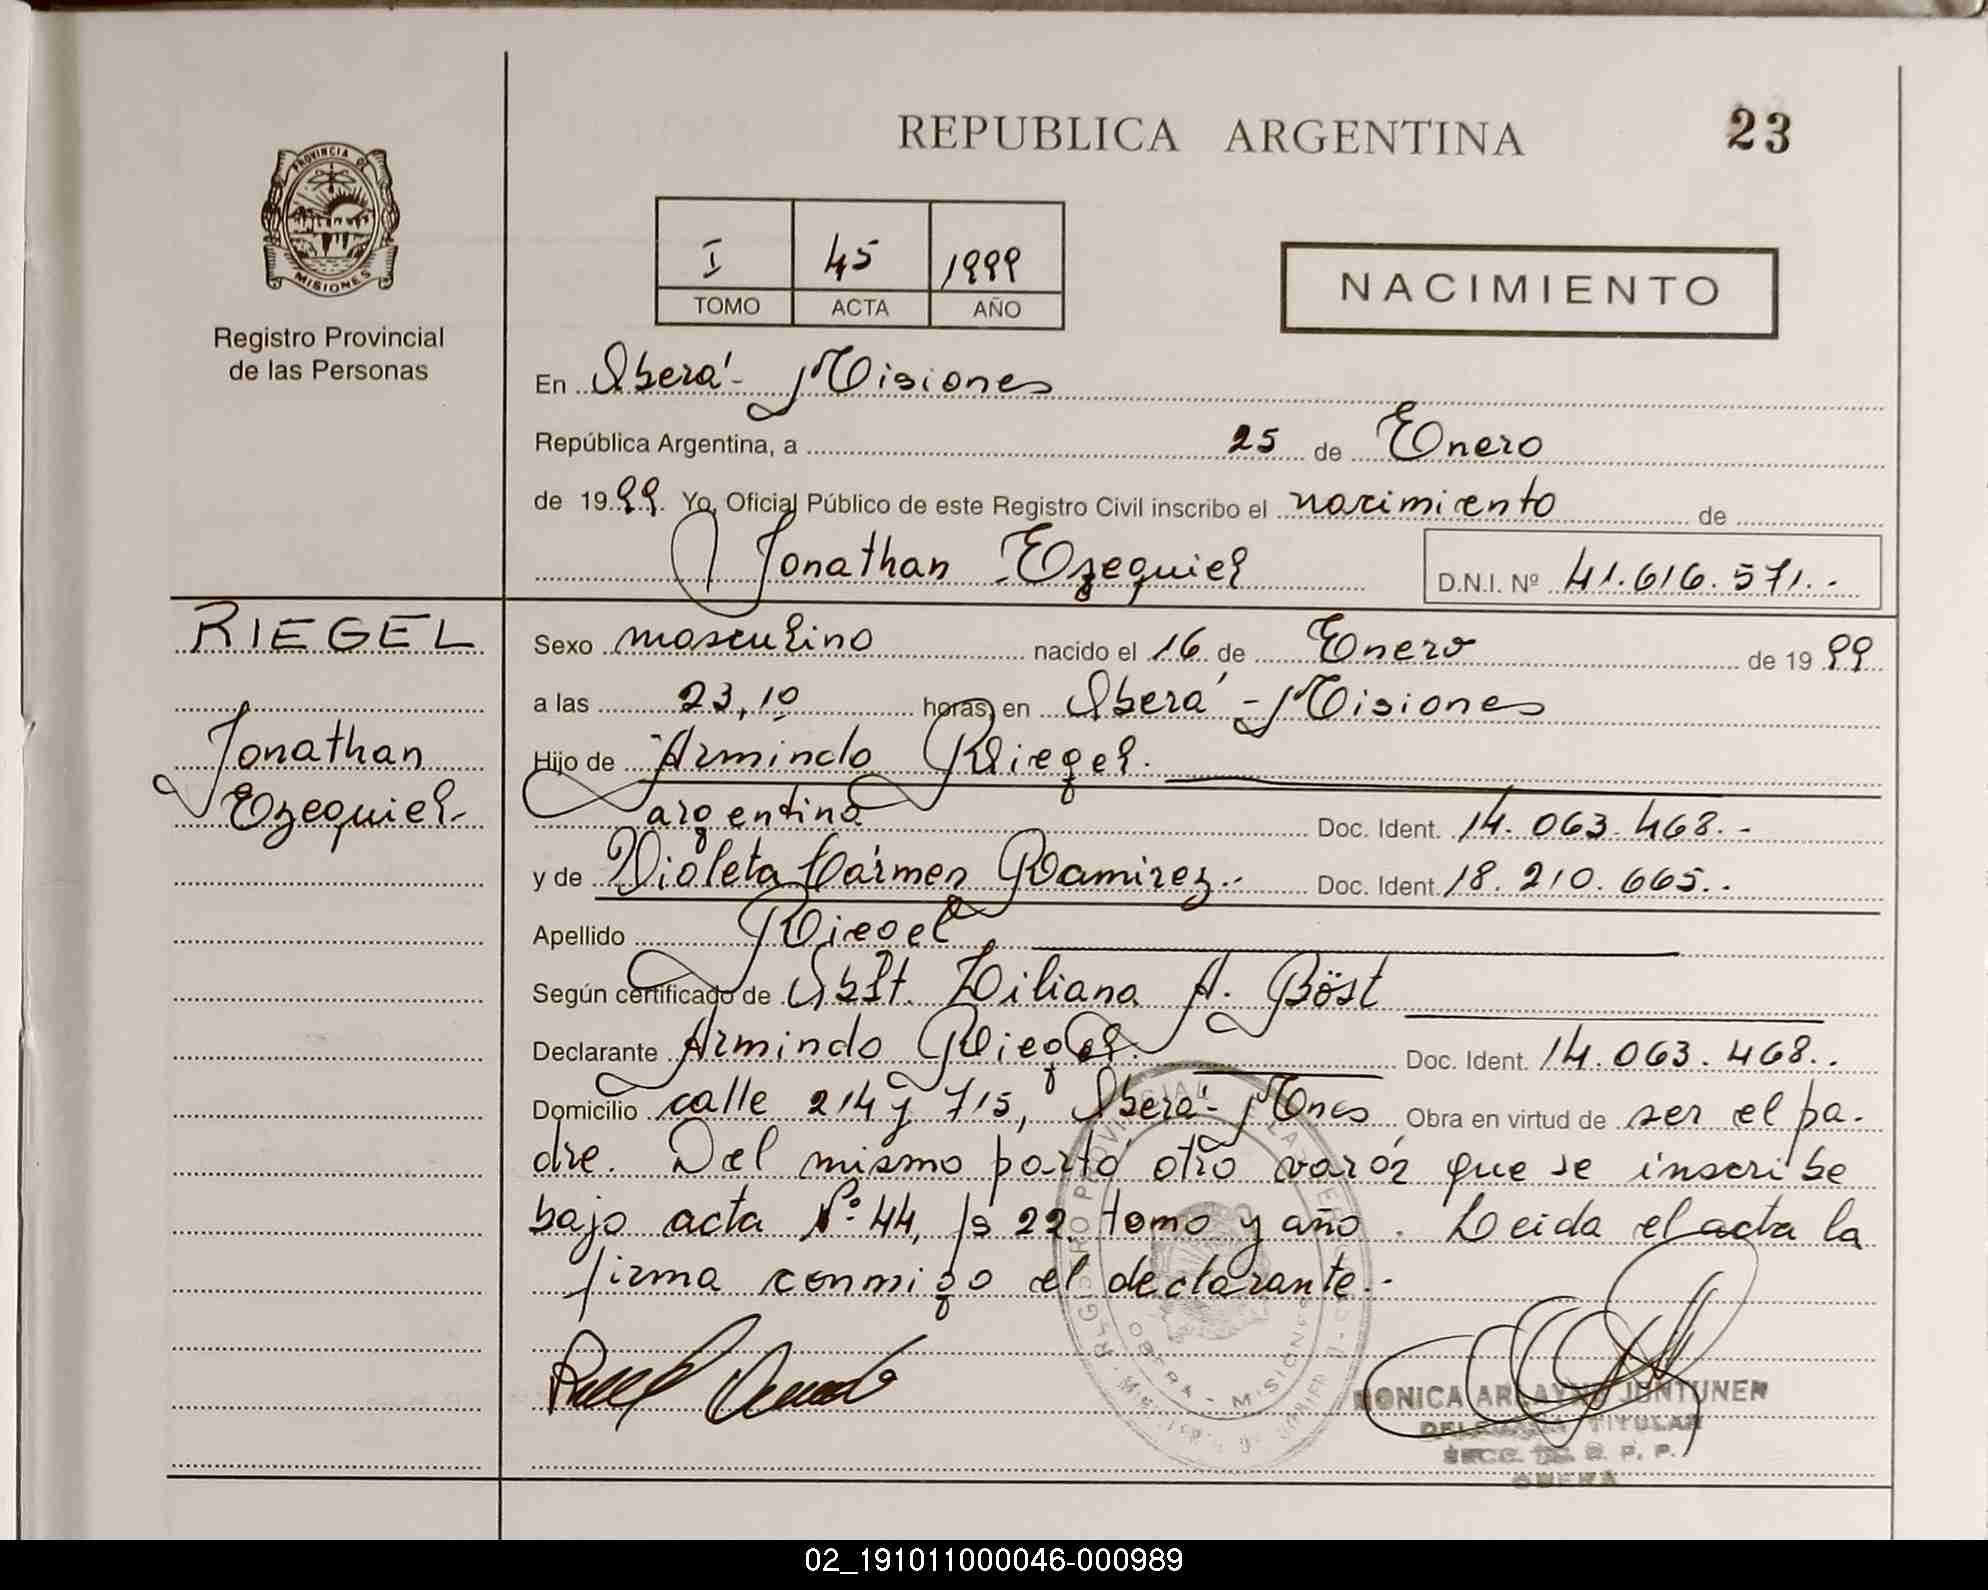 REPUBLICA ARGENTINA
23
PROVINCIA DE
MISIONES
Registro Provincial
de las Personas
I 45 1999
TOMO ACTA AÑO
NACIMIENTO
En Oberá - Misiones
República Argentina, a 25 de Enero
de 1999. Yo, Oficial Público de este Registro Civil inscribo el nacimiento de
Jonathan Ezequiel
D.N.I. Nº 41.616.571.-
RIEGEL
Jonathan
Ezequiel.-
Sexo masculino nacido el 16 de Enero de 1999
a las 23,10 horas, en Oberá - Misiones
Hijo de Armindo Riegel.
argentino Doc. Ident. 14.063.468.-
y de Violeta Cármen Ramirez.- Doc. Ident. 18.210.665.-
Apellido Riegel
Según certificado de Obst. Liliana A. Böst
Declarante Armindo Riegel. Doc. Ident. 14.063.468.-
Domicilio calle 214 y 715, Oberá - Mnes Obra en virtud de ser el pa-
dre. Del mismo parto otro varón que se inscribe
bajo acta Nº 44, fs 22, tomo y año. Leida el acta la
firma conmigo el declarante.-
OBERA - MISIONES
MONICA JUNTUNEN
DELEGADA TITULAR
OBERA
02_191011000046-000989